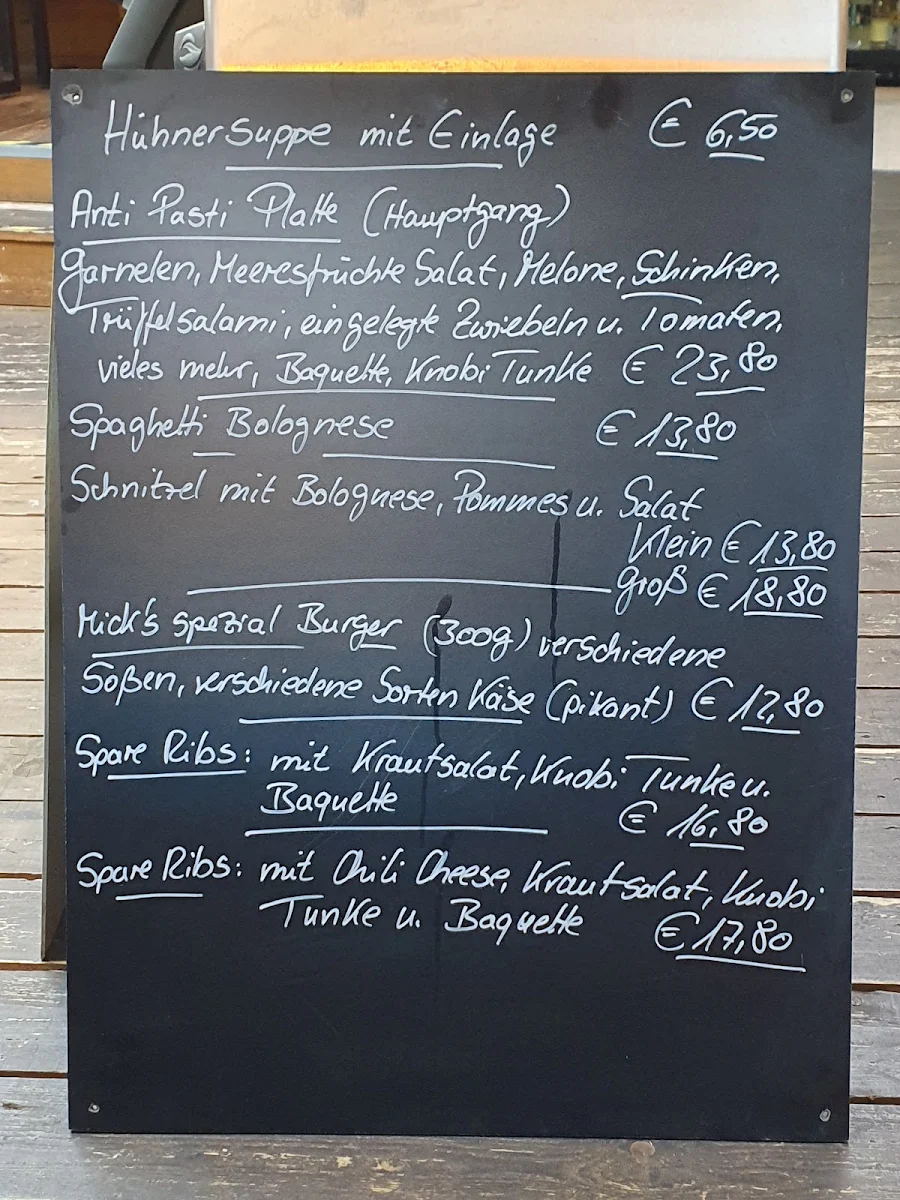 Hühnersuppe mit Einlage € 6,50
Anti Pasti Platte (Hauptgang)
Garnelen, Meeresfrüchte Salat, Melone, Schinken,
Trüffelsalami, eingelegte Zwiebeln u. Tomaten,
vieles mehr, Baquette, Knobi Tunke € 23,80
Spaghetti Bolognese € 13,80
Schnitzel mit Bolognese, Pommes u. Salat
Klein € 13,80
groß € 18,80
Mick's spezial Burger (300g) verschiedene
Soßen, verschiedene Sorten Käse (pikant) € 12,80
Spare Ribs: mit Krautsalat, Knobi Tunke u.
Baquette € 16,80
Spare Ribs: mit Chili Cheese, Krautsalat, Knobi
Tunke u. Baquette € 17,80